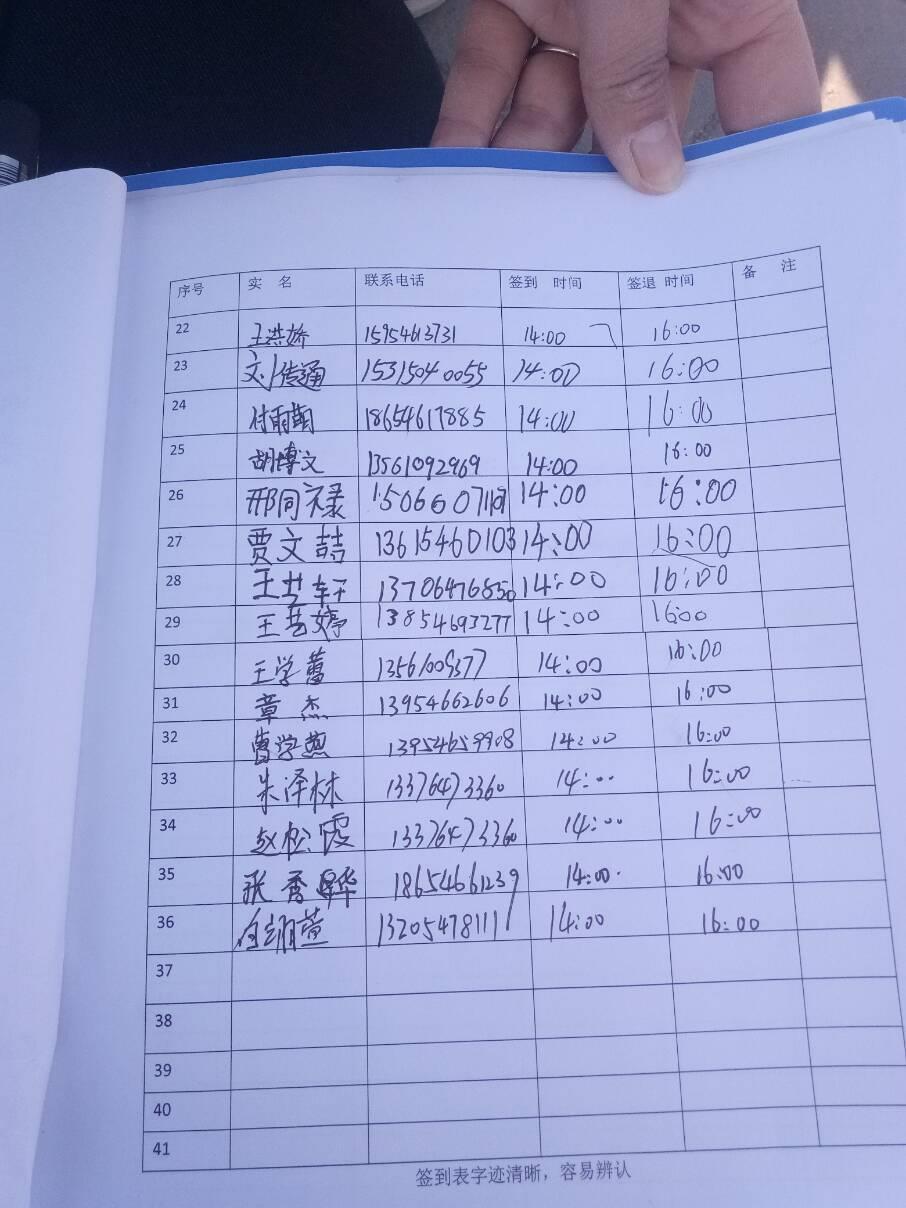 序号 实 名 联系电话 签到 时间 签退 时间 备 注
22 王洪娇 15954613731 14:00 16:00
23 刘传通 15315040055 14:00 16:00
24 付雨期 18654617885 14:00 16:00
25 胡博文 13561092969 14:00 16:00
26 邢同禄 14:00 16:00
27 贾文喆 13615460103 14:00 16:00
28 王艺轩 13706476850 14:00 16:00
29 王艺婷 13854693277 14:00 16:00
30 王学蕾 13561009377 14:00 16:00
31 章杰 13954662606 14:00 16:00
32 曹学燕 13954659908 14:00 16:00
33 朱泽林 13376473360 14:00 16:00
34 赵松霞 13376473360 14:00 16:00
35 张秀晔 18654661239 14:00 16:00
36 13205478111 14:00 16:00
37
38
39
40
41
签到表字迹清晰，容易辨认